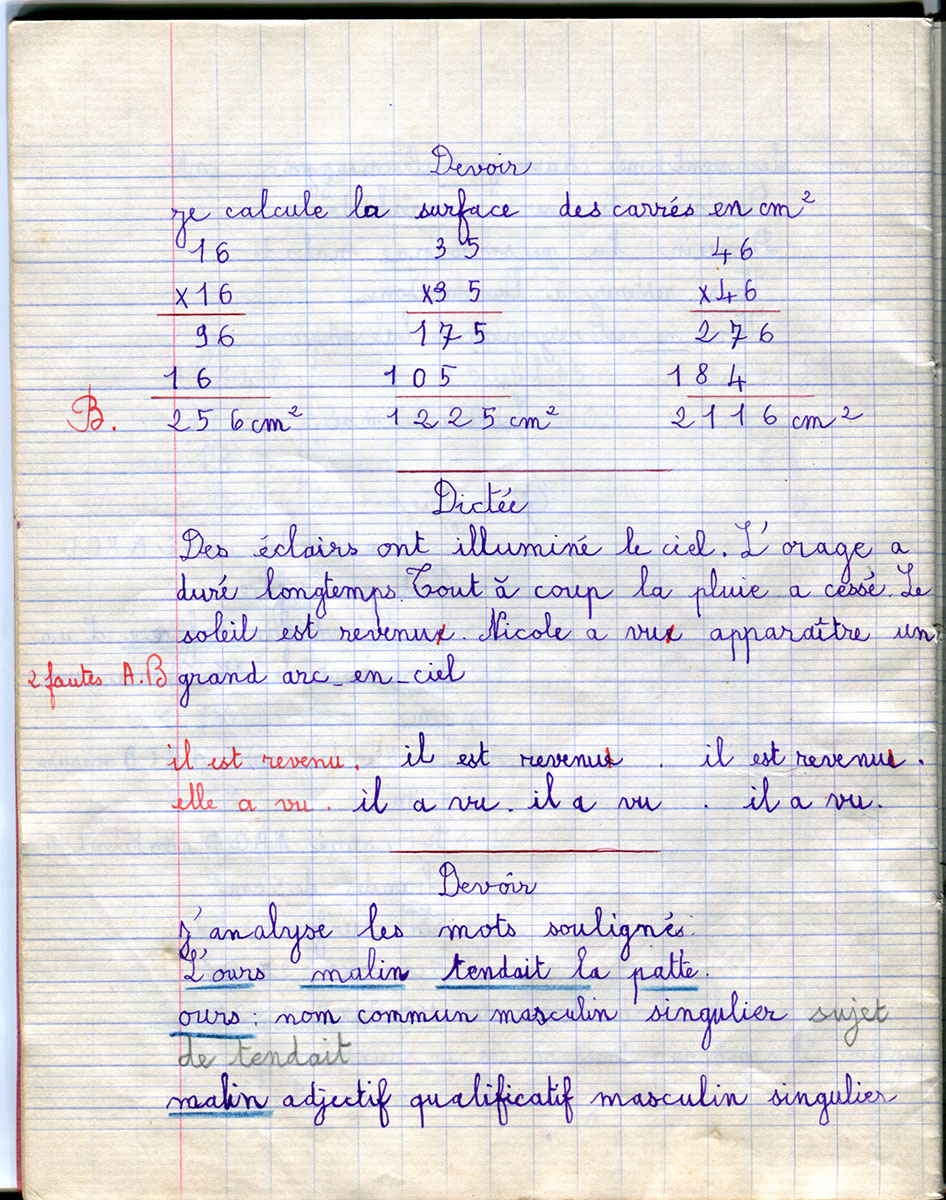 Devoir
je calcule la surface des carrés en cm²
16 35 46
x16 x35 x46
96 175 276
16 105 184
B. 256 cm² 1225 cm² 2116 cm²
Dictée
Des éclairs ont illuminé le ciel. L'orage a
duré longtemps. Tout à coup la pluie a cessé. Le
soleil est revenu. Nicole a vu apparaître un
2 fautes A.B grand arc-en-ciel
il est revenu. il est revenu. il est revenu.
elle a vu. il a vu. il a vu. il a vu.
Devoir
j'analyse les mots soulignés.
L'ours malin tendait la patte.
ours : nom commun masculin singulier sujet
de tendait
malin adjectif qualificatif masculin singulier